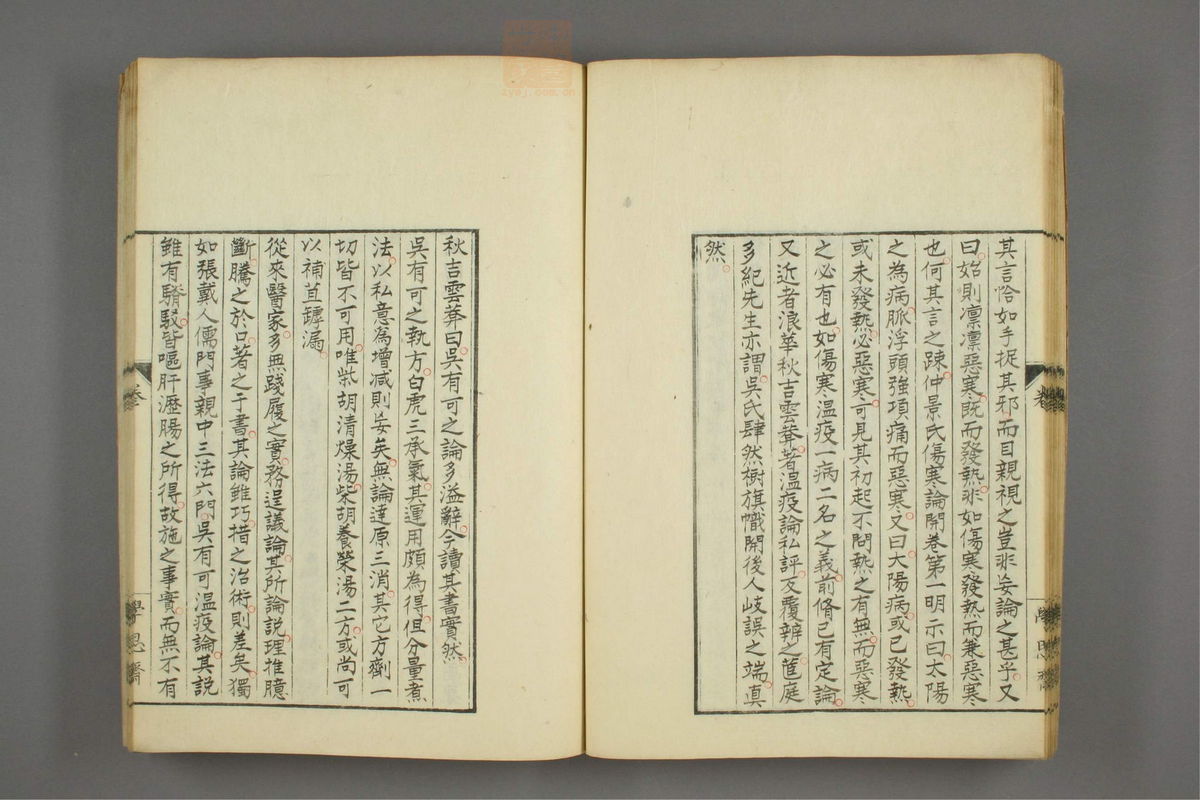 其言恰如手捉其邪而目親視之豈非妄論之甚乎又
曰始則凛凛惡寒既而發熱非如傷寒發熱而兼惡寒
也何其言之疎仲景氏傷寒論開卷第一明示曰太陽
之為病脈浮頭強項痛而惡寒又曰大陽病或已發熱
或未發熱必惡寒可見其初起不問熱之有無而惡寒
之必有也如傷寒溫疫一病二名之義前脩已有定論
又近者浪華秋吉雲莽著溫疫論私評反覆辨之荁庭
多紀先生亦謂吳氏肆然樹旗幟開後人歧誤之端真
然
卷
秋吉雲莽曰吳有可之論多溢辭今讀其書實然
吳有可之執方白虎三承氣其運用頗為得但分量煮
法以私意為增減則妄矣無論達原三消其它方劑一
切皆不可用唯柴胡清燥湯柴胡養榮湯二方或尚可
以補苴罅漏
從來醫家多無踐履之實務逞議論其所論說理推臆
斷騰之於口著之于書其論雖巧措之治術則差矣獨
如張戴人儒門事親中三法六門吳有可溫疫論其說
雖有䐑駁皆嘔肝瀝腸之所得故施之事實而無不有
卷
學思齋
zysj.com.cn